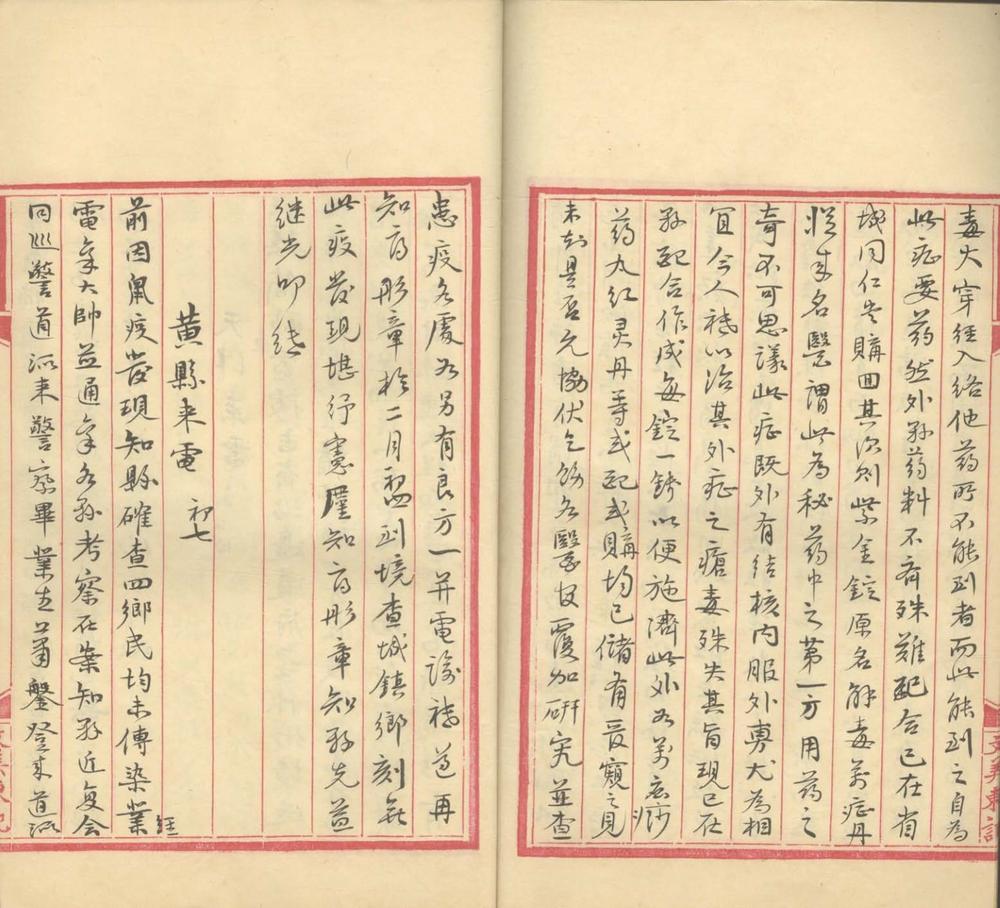 毒火穿經入絡他药所不能到者而此能到之自為
此症要药然外縣药料不齐殊難配合已在省
城同仁堂購回其次則紫金錠原名解毒萬症丹
從来名醫謂此為秘药中之第一方用药之
奇不可思議此症既外有结核内服外敷尤為相
宜今人祗以治其外症之瘡毒殊失其旨现已在
縣配合作成每錠一錢以便施濟此外如萬应痧
药九红灵丹等或配或購均已储有管窺之見
未知是否允協伏乞飭各醫官覆加研究並查
患疫各處如另有良方一并電諭祗遵再
知府彤章於二月初四到境查城鎮鄉刻無
此疫發现堪紓憲廑知府彤章知縣先益
继光叩
黄縣来電 初七
前因鼠疫發现知縣確查四鄉民均未傳染業經
電稟大帥並通稟各縣考察在案知縣近复会
同巡警道派来警察畢業生蕭 登来道派